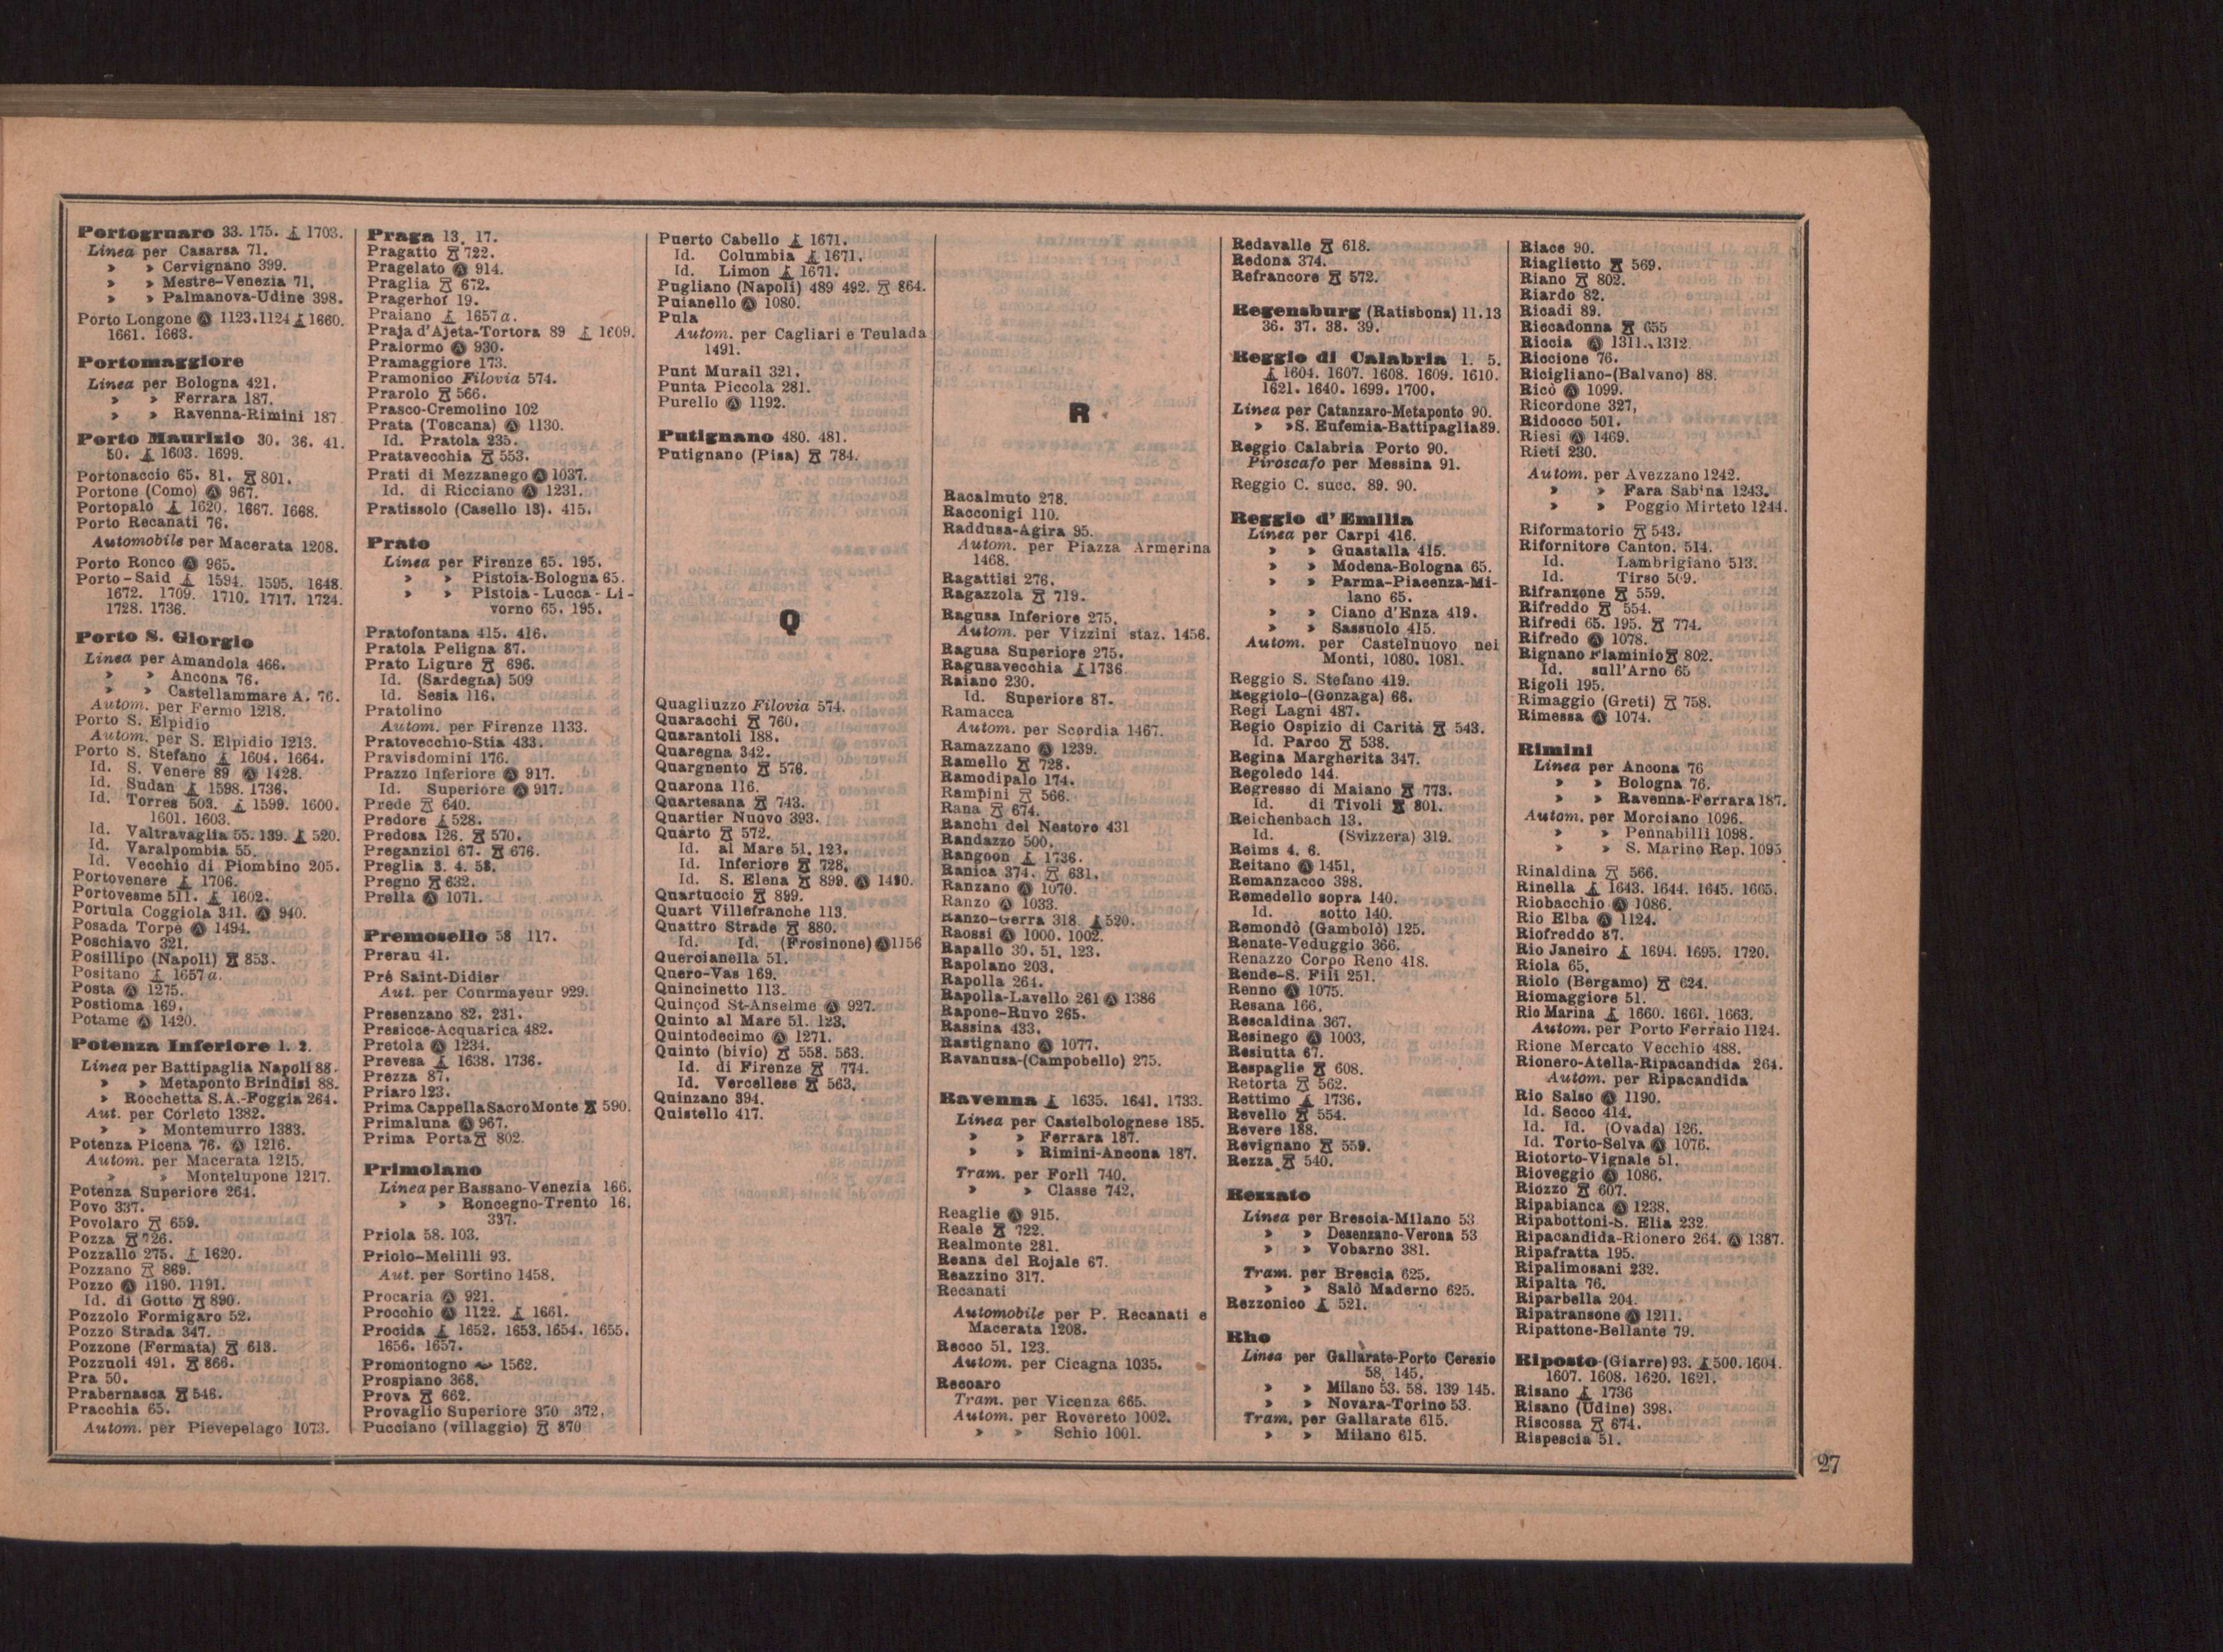 Portogruaro 33. 175. ⚓ 1703.
Linea per Casarsa 71.
» » Cervignano 399.
» » Mestre-Venezia 71.
» » Palmanova-Udine 398.
Porto Longone Ⓐ 1123.1124 ⚓ 1660.
1661. 1663.
Portomaggiore
Linea per Bologna 421.
» » Ferrara 187.
» » Ravenna-Rimini 187
Porto Maurizio 30. 36. 41.
50. ⚓ 1603. 1699.
Portonaccio 65. 81. 🚊 801.
Portone (Como) Ⓐ 967.
Portopalo ⚓ 1620. 1667. 1668.
Porto Recanati 76.
Automobile per Macerata 1208.
Porto Ronco Ⓐ 965.
Porto-Said ⚓ 1594. 1595. 1648.
1672. 1709. 1710. 1717. 1724.
1728. 1736.
Porto S. Giorgio
Linea per Amandola 466.
» » Ancona 76.
» » Castellammare A. 76.
Autom. per Fermo 1218.
Porto S. Elpidio
Autom. per S. Elpidio 1213.
Porto S. Stefano ⚓ 1604. 1664.
Id. S. Venere 89 Ⓐ 1428.
Id. Sudan ⚓ 1598. 1736.
Id. Torres 503. ⚓ 1599. 1600.
1601. 1603.
Id. Valtravaglia 55. 139. ⚓ 520.
Id. Varalpombia 55.
Id. Vecchio di Piombino 205.
Portovenere ⚓ 1706.
Portovesme 511. ⚓ 1602.
Portula Coggiola 341. Ⓐ 940.
Posada Torpè Ⓐ 1494.
Poschiavo 321.
Posillipo (Napoli) 🚊 853.
Positano ⚓ 1657a.
Posta Ⓐ 1275.
Postioma 169.
Potame Ⓐ 1420.
Potenza Inferiore 1. 2.
Linea per Battipaglia Napoli 88.
» » Metaponto Brindisi 88.
» Rocchetta S.A.-Foggia 264.
Aut. per Corleto 1382.
» » Montemurro 1383.
Potenza Picena 76. Ⓐ 1216.
Autom. per Macerata 1215.
» » Montelupone 1217.
Potenza Superiore 264.
Povo 337.
Povolaro 🚊 659.
Pozza 🚊 726.
Pozzallo 275. ⚓ 1620.
Pozzano 🚊 869.
Pozzo Ⓐ 1190. 1191.
Id. di Gotto 🚊 890.
Pozzolo Formigaro 52.
Pozzo Strada 347.
Pozzone (Fermata) 🚊 613.
Pozzuoli 491. 🚊 866.
Pra 50.
Prabernasca 🚊 546.
Pracchia 65.
Autom. per Pievepelago 1073.
Praga 13. 17.
Pragatto 🚊 722.
Pragelato Ⓐ 914.
Praglia 🚊 672.
Pragerhof 19.
Praiano ⚓ 1657a.
Praja d'Ajeta-Tortora 89 ⚓ 1609.
Pralormo Ⓐ 930.
Pramaggiore 173.
Pramonico Filovia 574.
Prarolo 🚊 566.
Prasco-Cremolino 102
Prata (Toscana) Ⓐ 1130.
Id. Pratola 235.
Pratavecchia 🚊 553.
Prati di Mezzanego Ⓐ 1037.
Id. di Ricciano Ⓐ 1231.
Pratissolo (Casello 13). 415.
Prato
Linea per Firenze 65. 195.
» » Pistoia-Bologna 65.
» » Pistoia-Lucca-Li-
vorno 65. 195.
Pratofontana 415. 416.
Pratola Peligna 87.
Prato Ligure 🚊 696.
Id. (Sardegna) 509
Id. Sesia 116.
Pratolino
Autom. per Firenze 1133.
Pratovecchio-Stia 433.
Pravisdomini 176.
Prazzo Inferiore Ⓐ 917.
Id. Superiore Ⓐ 917.
Prede 🚊 640.
Predore ⚓ 528.
Predosa 128. 🚊 570.
Preganziol 67. 🚊 676.
Preglia 3. 4. 58.
Pregno 🚊 632.
Prella Ⓐ 1071.
Premosello 58 117.
Prerau 41.
Pré Saint-Didier
Aut. per Courmayeur 929.
Presenzano 82. 231.
Presicce-Acquarica 482.
Pretola Ⓐ 1234.
Prevesa ⚓ 1638. 1736.
Prezza 87.
Priaro 123.
Prima Cappella Sacro Monte 🚊 590.
Primaluna Ⓐ 967.
Prima Porta 🚊 802.
Primolano
Linea per Bassano-Venezia 166.
» » Roncegno-Trento 16.
337.
Priola 58. 103.
Priolo-Melilli 93.
Aut. per Sortino 1458.
Procaria Ⓐ 921.
Procchio Ⓐ 1122. ⚓ 1661.
Procida ⚓ 1652. 1653. 1654. 1655.
1656. 1657.
Promontogno 1562.
Prospiano 368.
Prova 🚊 662.
Provaglio Superiore 370 372.
Pucciano (villaggio) 🚊 870
Puerto Cabello ⚓ 1671.
Id. Columbia ⚓ 1671.
Id. Limon ⚓ 1671.
Pugliano (Napoli) 489 492. 🚊 864.
Puianello Ⓐ 1080.
Pula
Autom. per Cagliari e Teulada
1491.
Punt Murail 321.
Punta Piccola 281.
Purello Ⓐ 1192.
Putignano 480. 481.
Putignano (Pisa) 🚊 784.
Q
Quagliuzzo Filovia 574.
Quaracchi 🚊 760.
Quarantoli 188.
Quaregna 342.
Quargnento 🚊 576.
Quarona 116.
Quartesana 🚊 743.
Quartier Nuovo 393.
Quarto 🚊 572.
Id. al Mare 51. 123.
Id. Inferiore 🚊 728.
Id. S. Elena 🚊 899. Ⓐ 1490.
Quartuccio 🚊 899.
Quart Villefranche 113.
Quattro Strade 🚊 880.
Id. Id. (Frosinone) Ⓐ 1156
Quercianella 51.
Quero-Vas 169.
Quincinetto 113.
Quinçod St-Anselme Ⓐ 927.
Quinto al Mare 51. 123.
Quintodecimo Ⓐ 1271.
Quinto (bivio) 🚊 558. 563.
Id. di Firenze 🚊 774.
Id. Vercellese 🚊 563.
Quinzano 394.
Quistello 417.
R
Racalmuto 278.
Racconigi 110.
Raddusa-Agira 95.
Autom. per Piazza Armerina
1468.
Ragattisi 276.
Ragazzola 🚊 719.
Ragusa Inferiore 275.
Autom. per Vizzini staz. 1456.
Ragusa Superiore 275.
Ragusavecchia ⚓ 1736
Raiano 230.
Id. Superiore 87.
Ramacca
Autom. per Scordia 1467.
Ramazzano Ⓐ 1239.
Ramello 🚊 728.
Ramodipalo 174.
Rampini 🚊 566.
Rana 🚊 674.
Ranchi del Nestore 431
Randazzo 500.
Rangoon ⚓ 1736.
Ranica 374. 🚊 631.
Ranzano Ⓐ 1070.
Ranzo Ⓐ 1033.
Ranzo-Gerra 318. ⚓ 520.
Raossi Ⓐ 1000. 1002.
Rapallo 30. 51. 123.
Rapolano 203.
Rapolla 261.
Rapolla-Lavello 261 Ⓐ 1386
Rapone-Ruvo 265.
Rassina 433.
Rastignano Ⓐ 1077.
Ravanusa-(Campobello) 275.
Ravenna ⚓ 1635. 1641. 1733.
Linea per Castelbolognese 185.
» » Ferrara 187.
» » Rimini-Ancona 187.
Tram. per Forlì 740.
» » Classe 742.
Reaglie Ⓐ 915.
Reale 🚊 722.
Realmonte 281.
Reana del Rojale 67.
Reazzino 317.
Recanati
Automobile per P. Recanati e
Macerata 1208.
Recco 51. 123.
Autom. per Cicagna 1035.
Recoaro
Tram. per Vicenza 665.
Autom. per Rovereto 1002.
» » Schio 1001.
Redavalle 🚊 618.
Redona 374.
Refrancore 🚊 572.
Regensburg (Ratisbona) 11.13
36. 37. 38. 39.
Reggio di Calabria 1. 5.
⚓ 1604. 1607. 1608. 1609. 1610.
1621. 1640. 1699. 1700.
Linea per Catanzaro-Metaponto 90.
» » S. Eufemia-Battipaglia 89.
Reggio Calabria Porto 90.
Piroscafo per Messina 91.
Reggio C. succ. 89. 90.
Reggio d' Emilia
Linea per Carpi 416.
» » Guastalla 415.
» » Modena-Bologna 65.
» » Parma-Piacenza-Mi-
lano 65.
» » Ciano d'Enza 419.
» » Sassuolo 415.
Autom. per Castelnuovo nei
Monti, 1080. 1081.
Reggio S. Stefano 419.
Reggiolo-(Gonzaga) 66.
Regi Lagni 487.
Regio Ospizio di Carità 🚊 543.
Id. Parco 🚊 538.
Regina Margherita 347.
Regoledo 144.
Regresso di Maiano 🚊 773.
Id. di Tivoli 🚊 801.
Reichenbach 13.
Id. (Svizzera) 319.
Reims 4. 6.
Reitano Ⓐ 1451.
Remanzacco 398.
Remedello sopra 140.
Id. sotto 140.
Remondò (Gambolò) 125.
Renate-Veduggio 366.
Renazzo Corpo Reno 418.
Rende-S. Fili 251.
Renno Ⓐ 1075.
Resana 166.
Rescaldina 367.
Resinego Ⓐ 1003.
Resiutta 67.
Respaglie 🚊 608.
Retorta 🚊 562.
Rettimo ⚓ 1736.
Revello 🚊 554.
Revere 188.
Revignano 🚊 559.
Rezza 🚊 540.
Rezzato
Linea per Brescia-Milano 53
» » Desenzano-Verona 53
» » Vobarno 381.
Tram. per Brescia 625.
» » Salò Maderno 625.
Rezzonico ⚓ 521.
Rho
Linea per Gallarate-Porto Ceresio
58. 145.
» » Milano 53. 58. 139 145.
» » Novara-Torino 53.
Tram. per Gallarate 615.
» » Milano 615.
Riace 90.
Riaglietto 🚊 569.
Riano 🚊 802.
Riardo 82.
Ricadi 89.
Riccadonna 🚊 655
Riccia Ⓐ 1311. 1312.
Riccione 76.
Ricigliano-(Balvano) 88.
Ricò Ⓐ 1099.
Ricordone 327.
Ridocco 501.
Riesi Ⓐ 1469.
Rieti 230.
Autom. per Avezzano 1242.
» » Fara Sabina 1243.
» » Poggio Mirteto 1244.
Riformatorio 🚊 543.
Rifornitore Canton. 514.
Id. Lambrigiano 513.
Id. Tirso 509.
Rifranzone 🚊 559.
Rifreddo 🚊 554.
Rifredi 65. 195. 🚊 774.
Rifredo Ⓐ 1078.
Rignano Flaminio 🚊 802.
Id. sull'Arno 65
Rigoli 195.
Rimaggio (Greti) 🚊 758.
Rimessa Ⓐ 1074.
Rimini
Linea per Ancona 76
» » Bologna 76.
» » Ravenna-Ferrara 187.
Autom. per Morciano 1096.
» » Pennabilli 1098.
» » S. Marino Rep. 1095
Rinaldina 🚊 566.
Rinella ⚓ 1643. 1644. 1645. 1665.
Riobacchio Ⓐ 1086.
Rio Elba Ⓐ 1124.
Riofreddo 87.
Rio Janeiro ⚓ 1694. 1695. 1720.
Riola 65.
Riolo (Bergamo) 🚊 624.
Riomaggiore 51.
Rio Marina ⚓ 1660. 1661. 1663.
Autom. per Porto Ferraio 1124.
Rione Mercato Vecchio 488.
Rionero-Atella-Ripacandida 264.
Autom. per Ripacandida
Rio Salso Ⓐ 1190.
Id. Secco 414.
Id. Id. (Ovada) 126.
Id. Torto-Selva Ⓐ 1076.
Riotorto-Vignale 51.
Rioveggio Ⓐ 1086.
Riozzo 🚊 607.
Ripabianca Ⓐ 1238.
Ripabottoni-S. Elia 232.
Ripacandida-Rionero 264. Ⓐ 1387.
Ripafratta 195.
Ripalimosani 232.
Ripalta 76.
Riparbella 204.
Ripatransone Ⓐ 1211.
Ripattone-Bellante 79.
Riposto (Giarre) 93. ⚓ 500. 1604.
1607. 1608. 1620. 1621.
Risano ⚓ 1736
Risano (Udine) 398.
Riscossa 🚊 674.
Rispescia 51.
27